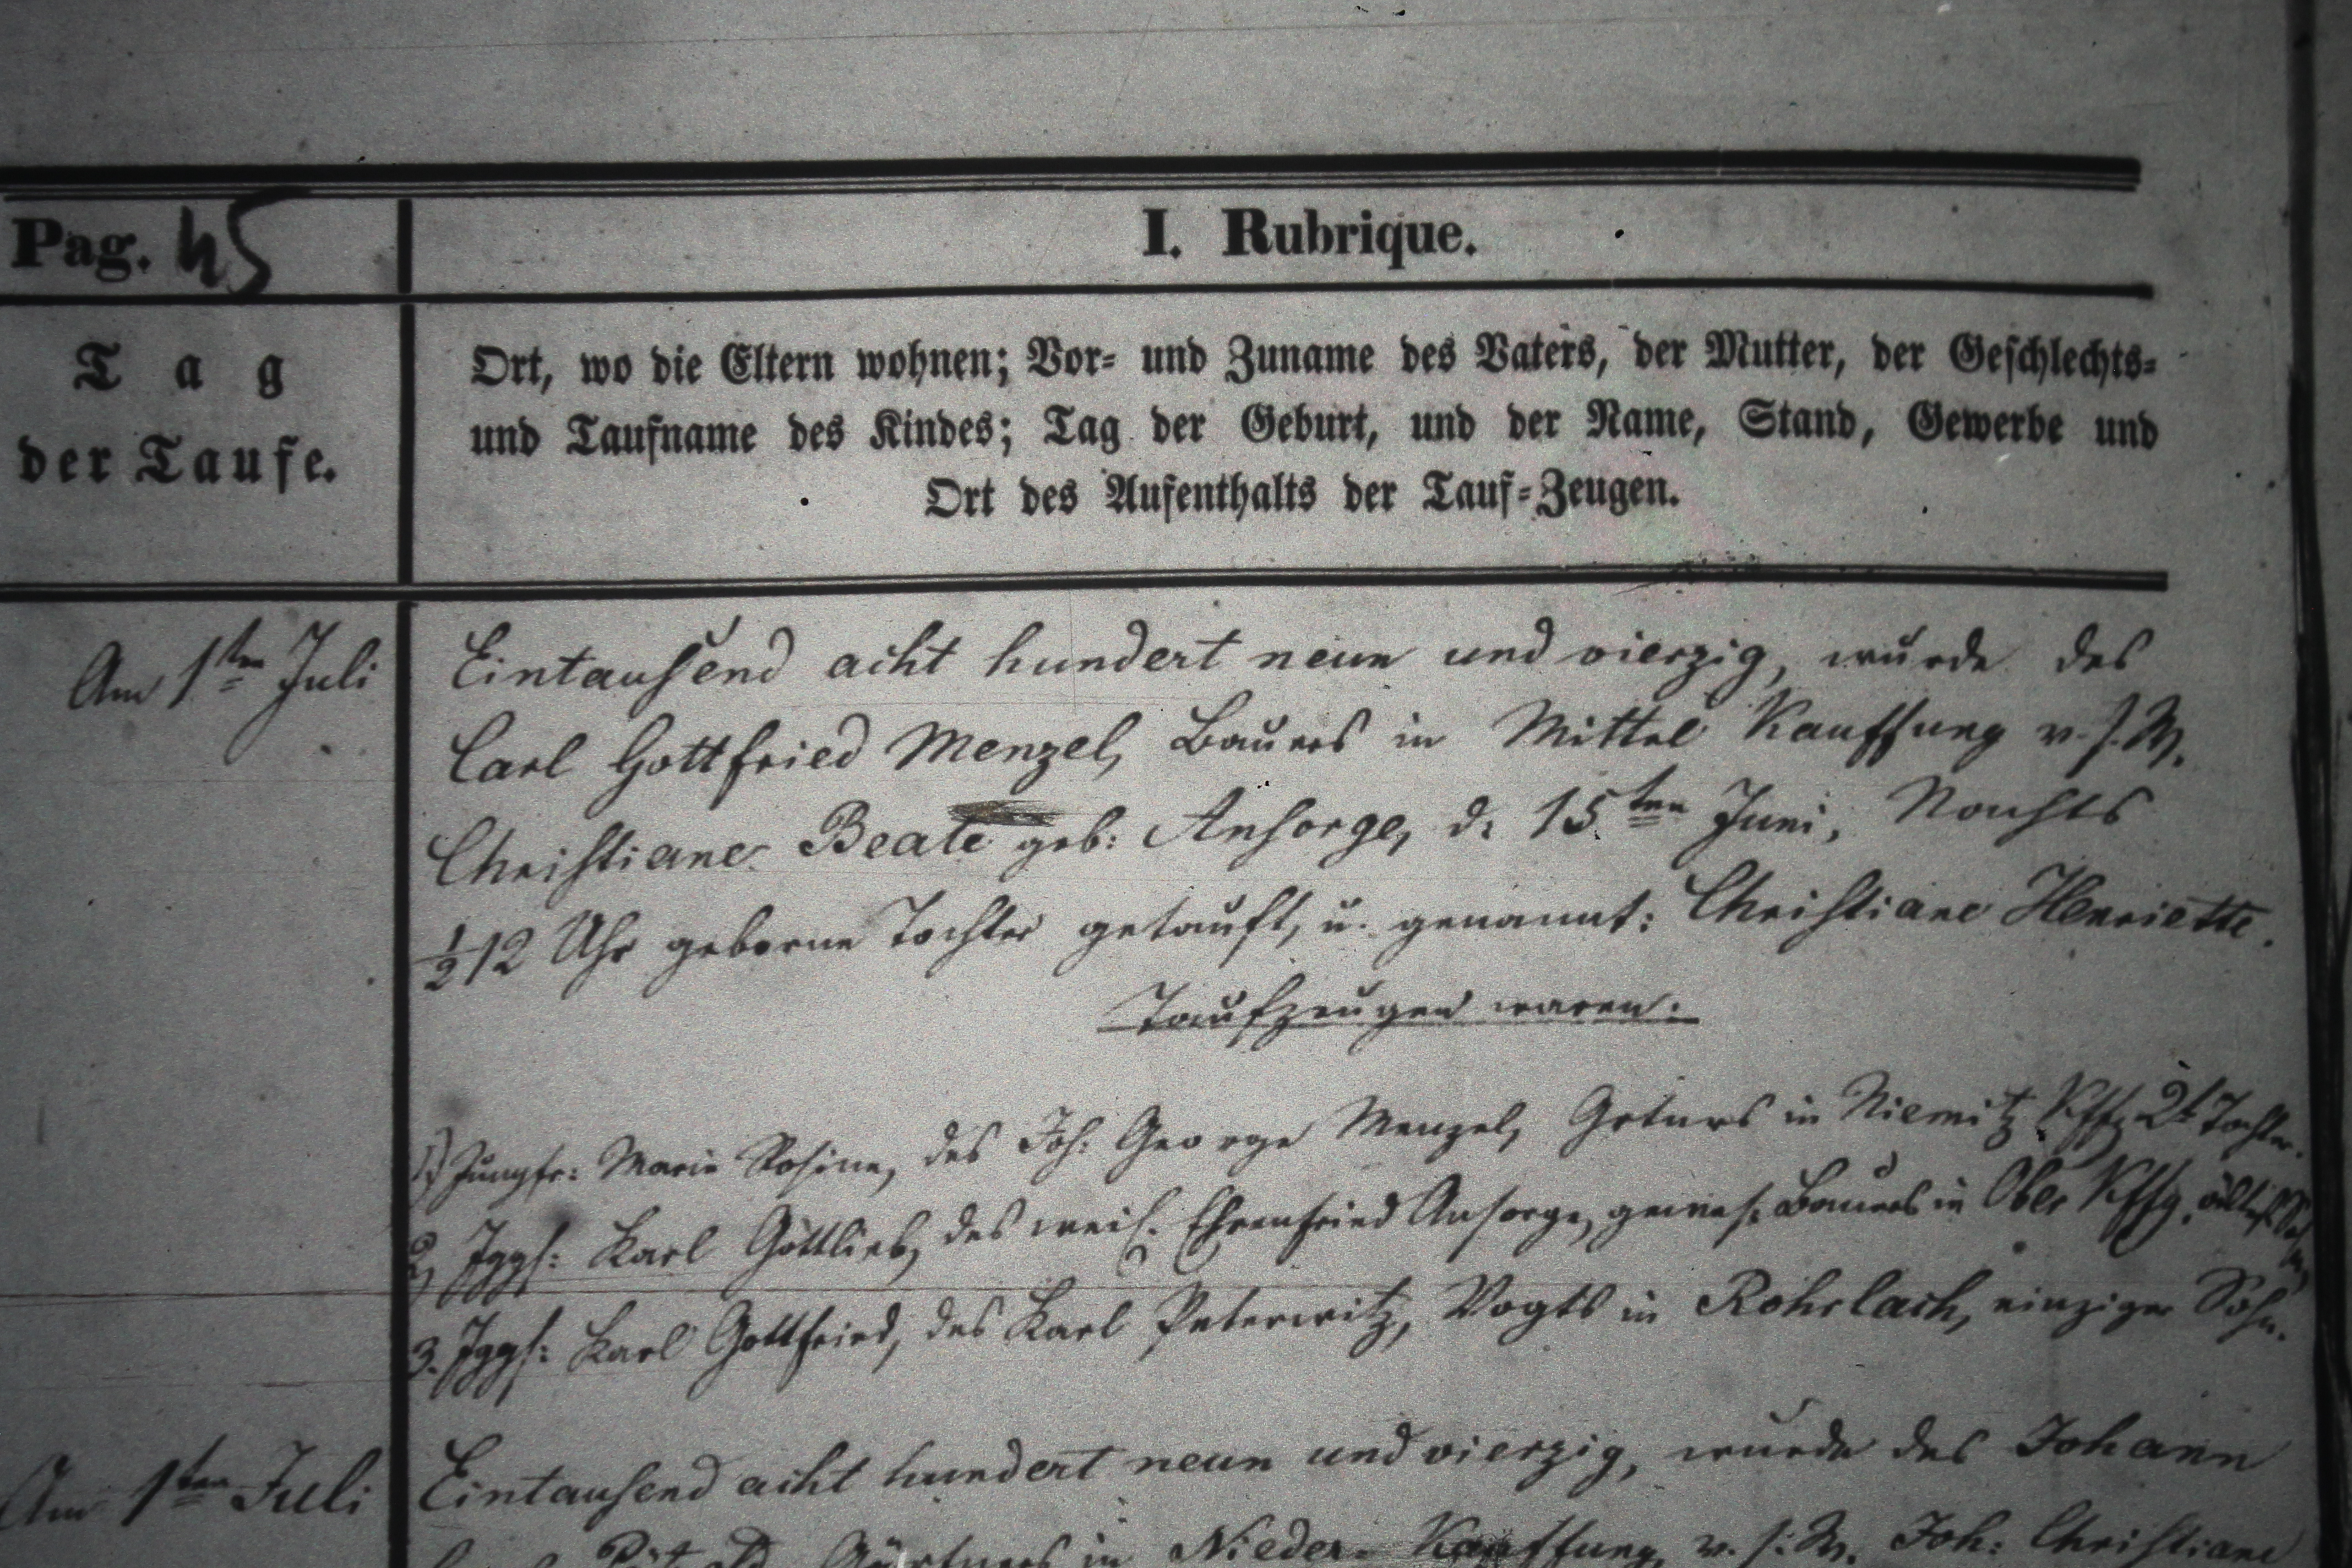 Pag. 45
I. Rubrique.
Tag
der Taufe.
Ort, wo die Eltern wohnen; Vor- und Zuname des Vaters, der Mutter, der Geschlechts-
und Taufname des Kindes; Tag der Geburt, und der Name, Stand, Gewerbe und
Ort des Aufenthalts der Tauf-Zeugen.
Am 1ten Juli
Eintausend acht hundert neun und vierzig, wurde des
Carl Gottfried Menzel, Bauers in Mittel Kauffung u. s. W.
Christiane Beate geb: Ansorge, d. 15ten Juni, Nachts
½12 Uhr geborne Tochter getauft, u. genannt: Christiane Henriette.
Taufzeugen waren:
1) Jungfr: Marie Rosine, des Joh: George Menzel, Grtnrs in Niemitz Kffg 2t Tochter.
2, Jggs: Karl Gottlieb, des weil. Ehrenfried Ansorge, gewes: Bauers in Ober Kffg,
3. Jggs: Karl Gottfried, des Karl Peterwitz, Vogts in Rohrlach, einziger Sohn.
Am 1ten Juli
Eintausend acht hundert neun und vierzig, wurde des Johann
Gärtners in Nieder-Kauffung, u. s. W. Joh: Christiane